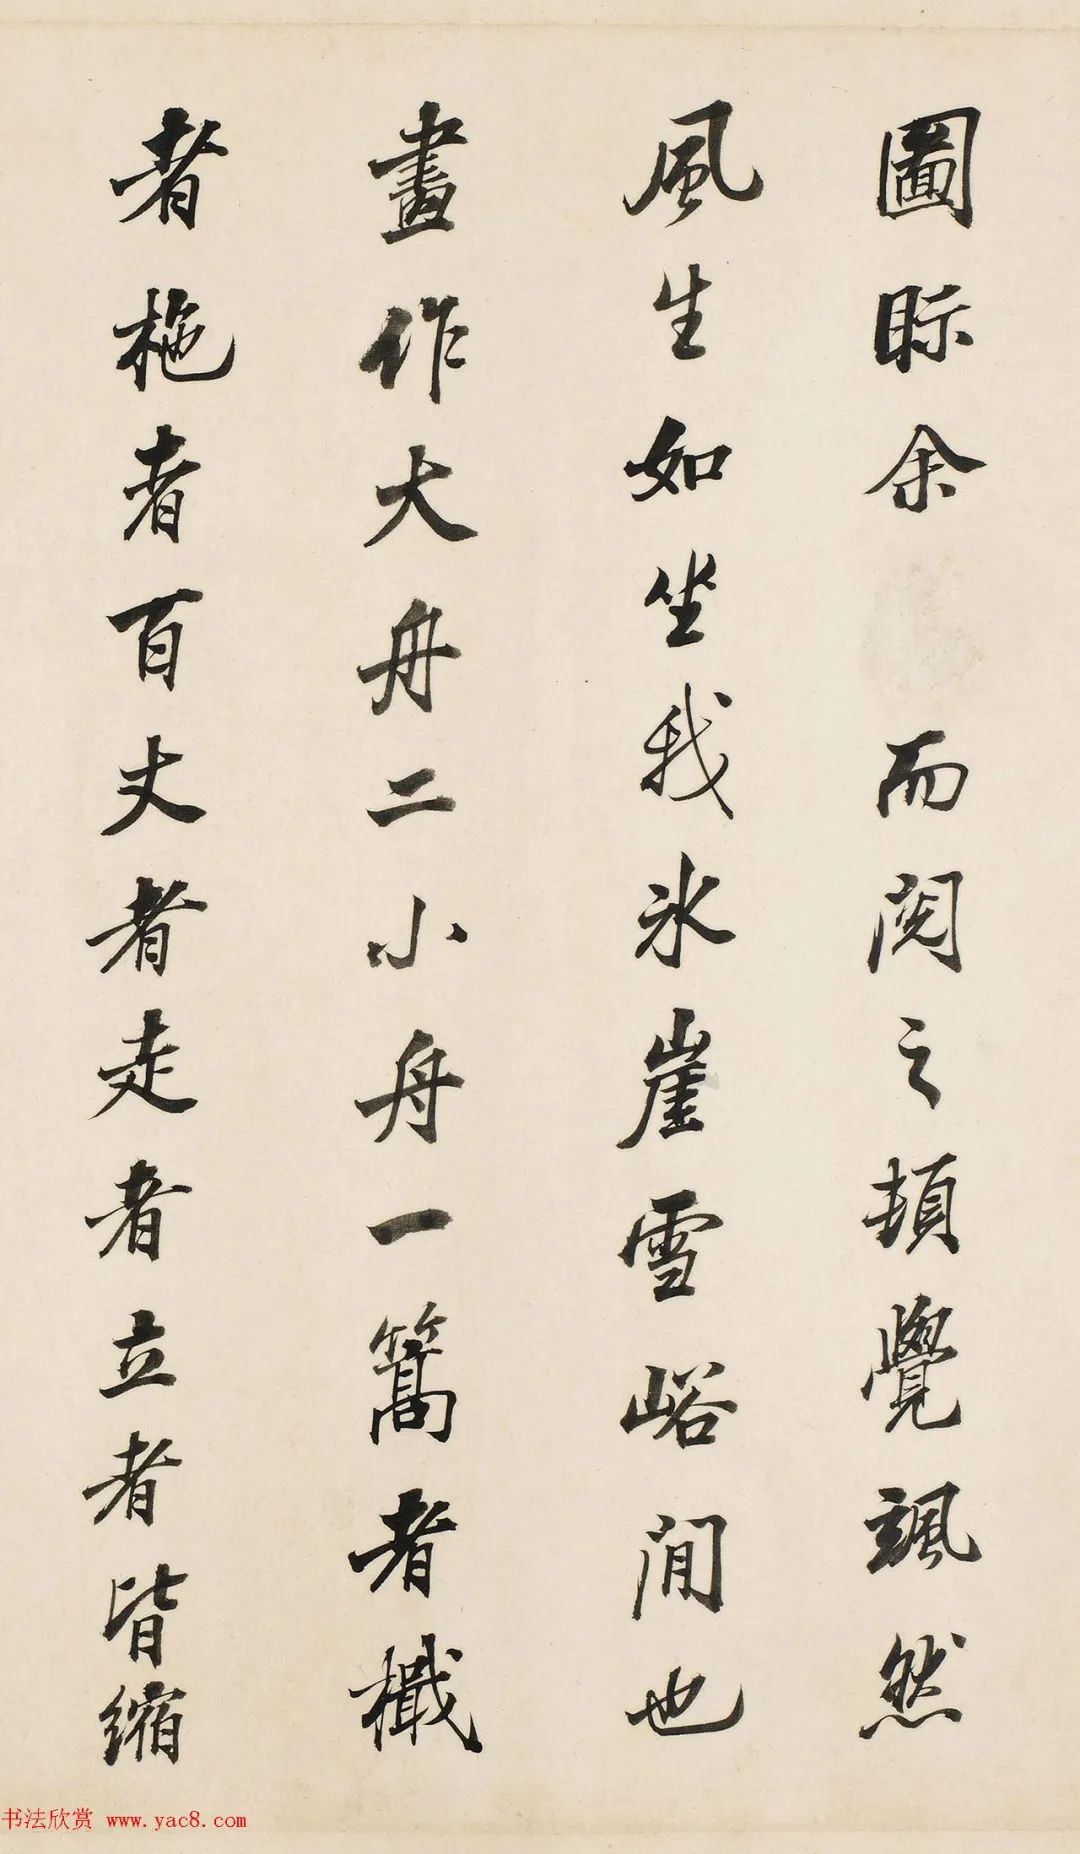 圖眎余 而閱之頓覺颯然
風生如坐我氷崖雪峪間也
畫作大舟二小舟一篙者檝
者柂者百丈者走者立者皆縮
书法欣赏 www.yac8.com